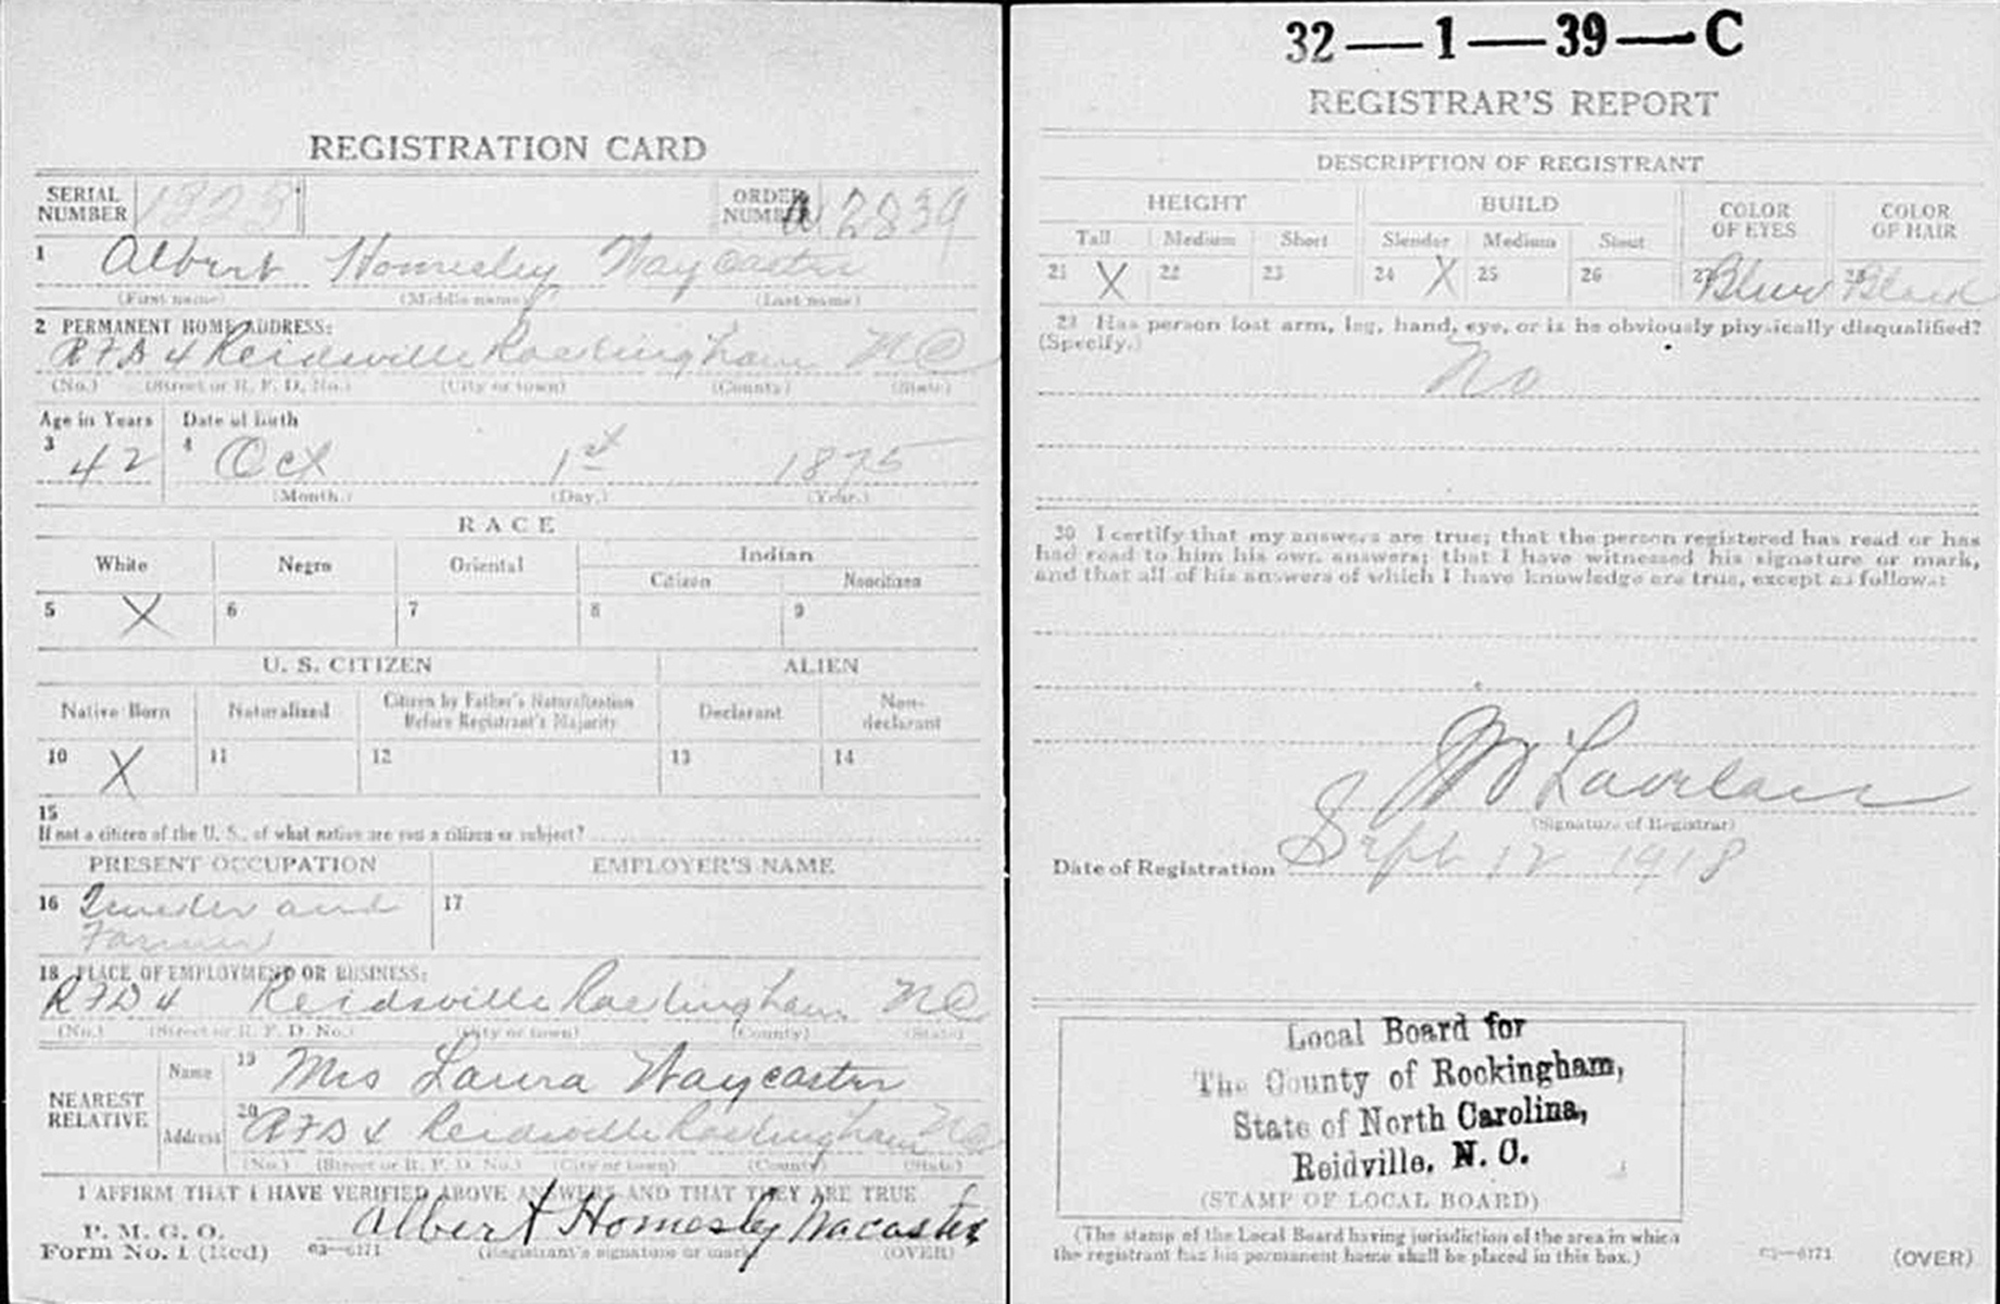 REGISTRATION CARD
SERIAL NUMBER 1323 ORDER NUMBER A 2839
1 Albert Homesley Waycaster
(First name) (Middle name) (Last name)
2 PERMANENT HOME ADDRESS:
RFD 4 Reidsville Rockingham NC
(No.) (Street or R. F. D. No.) (City or town) (County) (State)
Age in Years Date of birth
3 42 4 Oct 1st 1875
(Month.) (Day.) (Year.)
RACE
White Negro Oriental Indian
Citizen Noncitizen
5 X 6 7 8 9
U. S. CITIZEN ALIEN
Native Born Naturalized Citizen by Father's Naturalization Before Registrant's Majority Declarant Non-declarant
10 X 11 12 13 14
15
If not a citizen of the U. S., of what nation are you a citizen or subject?
PRESENT OCCUPATION EMPLOYER'S NAME
16 and 17
Farmer
18 PLACE OF EMPLOYMENT OR BUSINESS:
RFD 4 Reidsville Rockingham NC
(No.) (Street or R. F. D. No.) (City or town) (County) (State)
NEAREST RELATIVE
Name 19 Mrs Laura Waycaster
Address 20 RFD 4 Reidsville Rockingham NC
(No.) (Street or R. F. D. No.) (City or town) (County) (State)
I AFFIRM THAT I HAVE VERIFIED ABOVE ANSWERS AND THAT THEY ARE TRUE
P. M. G. O.
Form No. 1 (Red) 03—6171 Albert Homesley Wacaster
(Registrant's signature or mark) (OVER)
32—1—39—C
REGISTRAR'S REPORT
DESCRIPTION OF REGISTRANT
HEIGHT BUILD COLOR OF EYES COLOR OF HAIR
Tall Medium Short Slender Medium Stout
21 X 22 23 24 X 25 26 27 Blue 28 Black
29 Has person lost arm, leg, hand, eye, or is he obviously physically disqualified?
(Specify.)
No
30 I certify that my answers are true; that the person registered has read or has
had read to him his own answers; that I have witnessed his signature or mark,
and that all of his answers of which I have knowledge are true, except as follows:
(Signature of Registrar)
Date of Registration Sept 12 1918
Local Board for
The County of Rockingham,
State of North Carolina,
Reidville, N. C.
(STAMP OF LOCAL BOARD)
(The stamp of the Local Board having jurisdiction of the area in which
the registrant has his permanent home shall be placed in this box.)
03—6171 (OVER)